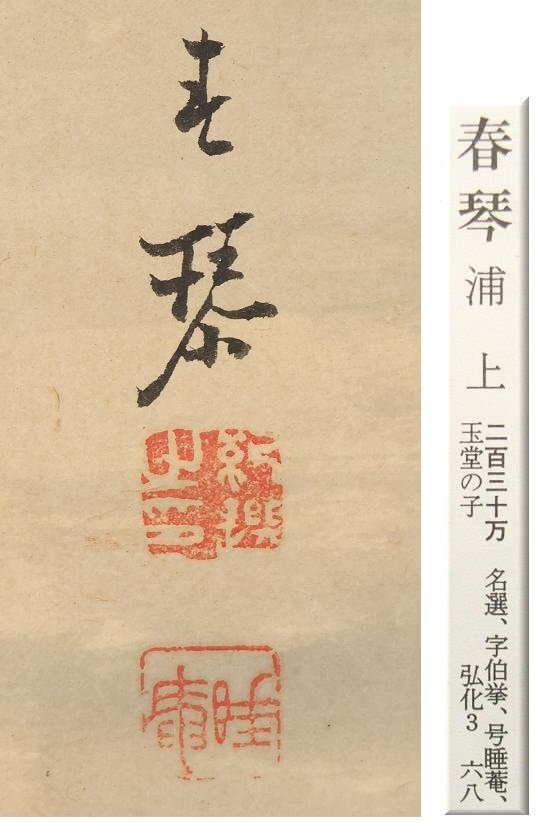 春琴
紀撰
之印
睡
庵
春琴 浦上
二百三十万 名選、字伯挙、号睡菴、
玉堂の子 弘化3 六八